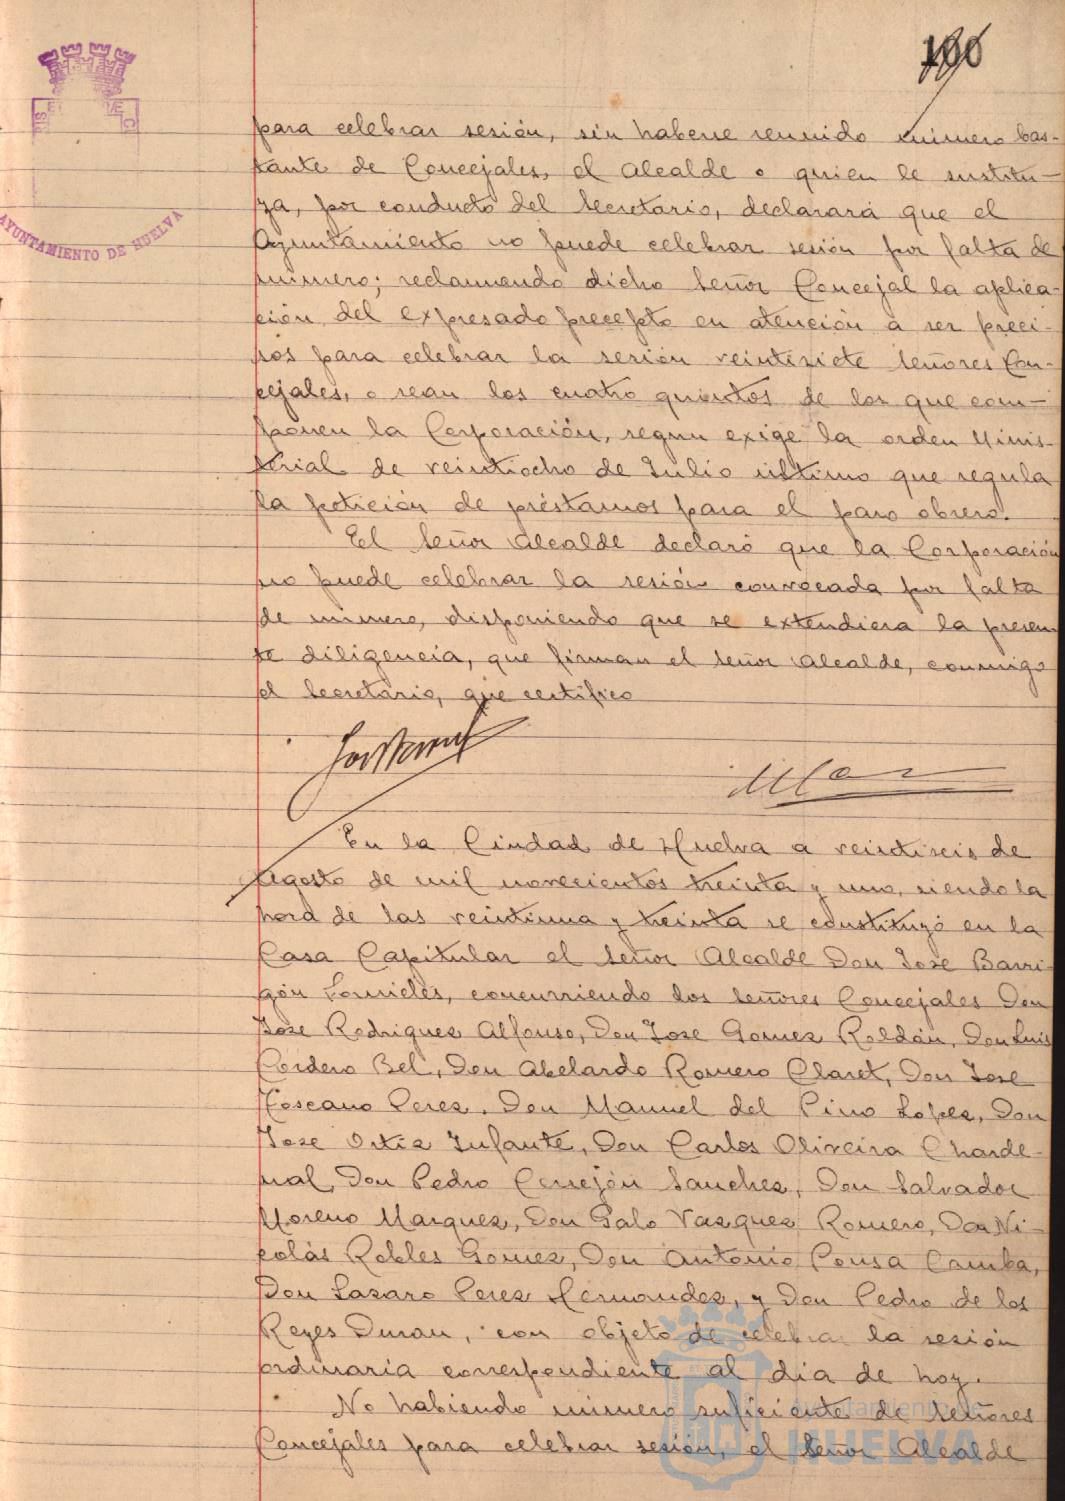 100
AYUNTAMIENTO DE HUELVA
para celebrar sesión, sin haberse reunido número bas-
tante de Concejales, el Alcalde o quien le sustitu-
ya, por conducto del Secretario, declarará que el
Ayuntamiento no puede celebrar sesión por falta de
número; reclamando dicho Señor Concejal la aplica-
ción del expresado precepto en atención a ser preci-
sos para celebrar la sesión veintisiete Señores Con-
cejales, o sean los cuatro quintos de los que com-
ponen la Corporación, segun exige la orden Minis-
terial de veintiocho de Julio último que regula
la petición de préstamos para el paro obrero.
El Señor Alcalde declaró que la Corporación
no puede celebrar la sesión convocada por falta
de número, disponiendo que se extendiera la presen-
te diligencia, que firman el Señor Alcalde, conmigo
el Secretario, que certifico
En la Ciudad de Huelva a veintiseis de
Agosto de mil novecientos treinta y uno, siendo la
hora de las veintiuna y treinta se constituyó en la
Casa Capitular el Señor Alcalde Don Jose Barri-
gón Fornieles, concurriendo los Señores Concejales Don
Jose Rodriguez Alfonso, Don Jose Gomez Roldán, Don Luis
Cordero Bel, Don Abelardo Romero Claret, Don Jose
Toscano Perez, Don Manuel del Pino Lopez, Don
Jose Ortiz Infante, Don Carlos Oliveira Charde-
nal, Don Pedro Cerrejón Sanchez, Don Salvador
Moreno Marquez, Don Galo Vazquez Romero, Don Ni-
colás Robles Gomez, Don Antonio Pousa Camba,
Don Lazaro Perez Hernandez, y Don Pedro de los
Reyes Duran, con objeto de celebrar la sesión
ordinaria correspondiente al día de hoy.
No habiendo número suficiente de Señores
Concejales para celebrar sesión, el Señor Alcalde
Ayuntamiento de
HUELVA